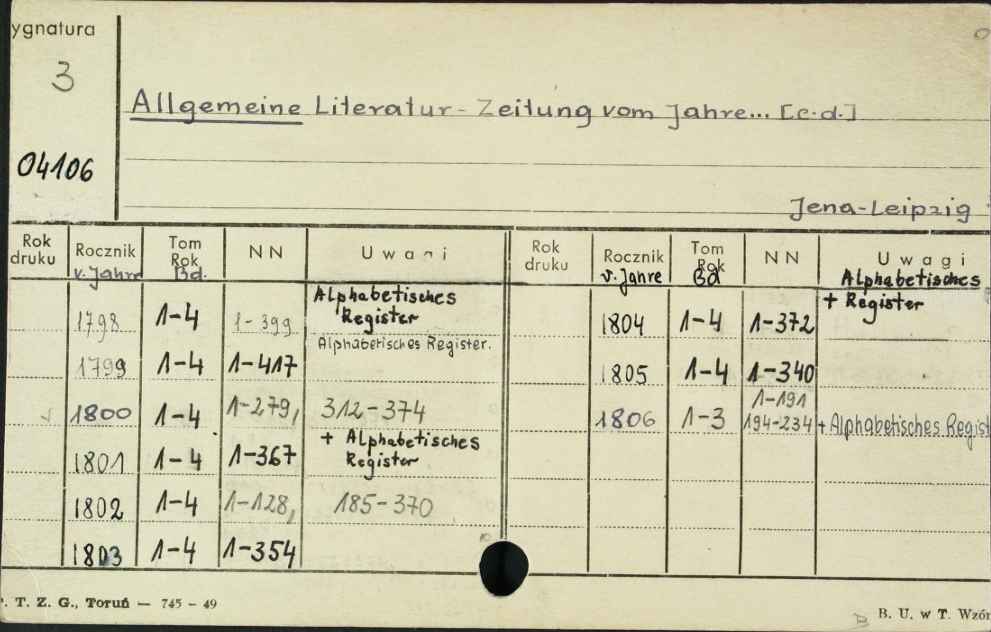 ygnatura
3
04106
Allgemeine Literatur-Zeitung vom Jahre... [c.d.]
Jena-Leipzig
Rok druku Rocznik v. Jahre Tom Rok Bd. NN Uwagi
Alphabetisches
1798 1-4 1-399 Register
Alphabetisches Register.
1799 1-4 1-417
1800 1-4 1-279, 312-374
+ Alphabetisches
1801 1-4 1-367 Register
1802 1-4 1-128, 185-370
1803 1-4 1-354
Rok druku Rocznik v. Jahre Tom Rok Bd NN Uwagi
Alphabetisches
+ Register
1804 1-4 1-372
1805 1-4 1-340
1-191
1806 1-3 194-234 + Alphabetisches Regist
. T. Z. G., Toruń — 745 - 49
B. U. w T. Wzór